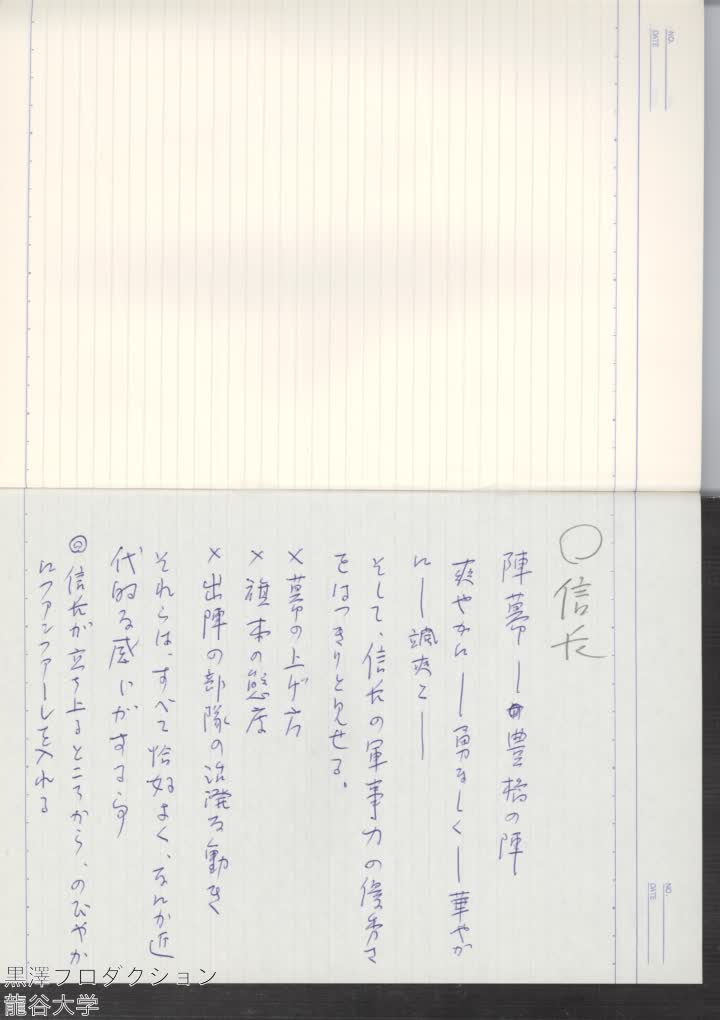 ○信長
陣幕ー豊橋の陣
爽やかにー勇ましくー華やか
にー颯爽とー
そして、信長の軍事力の優秀さ
をはっきりと見せる。
×幕の上げ方
×旗本の態度
×出陣の部隊の活溌な動き
それらは、すべて恰好よく、なんか近
代的な感じがする事
◎信長が立ち上るところから、のびやか
にファンファーレを入れる
NO.
DATE
NO.
DATE
黒澤プロダクション
龍谷大学